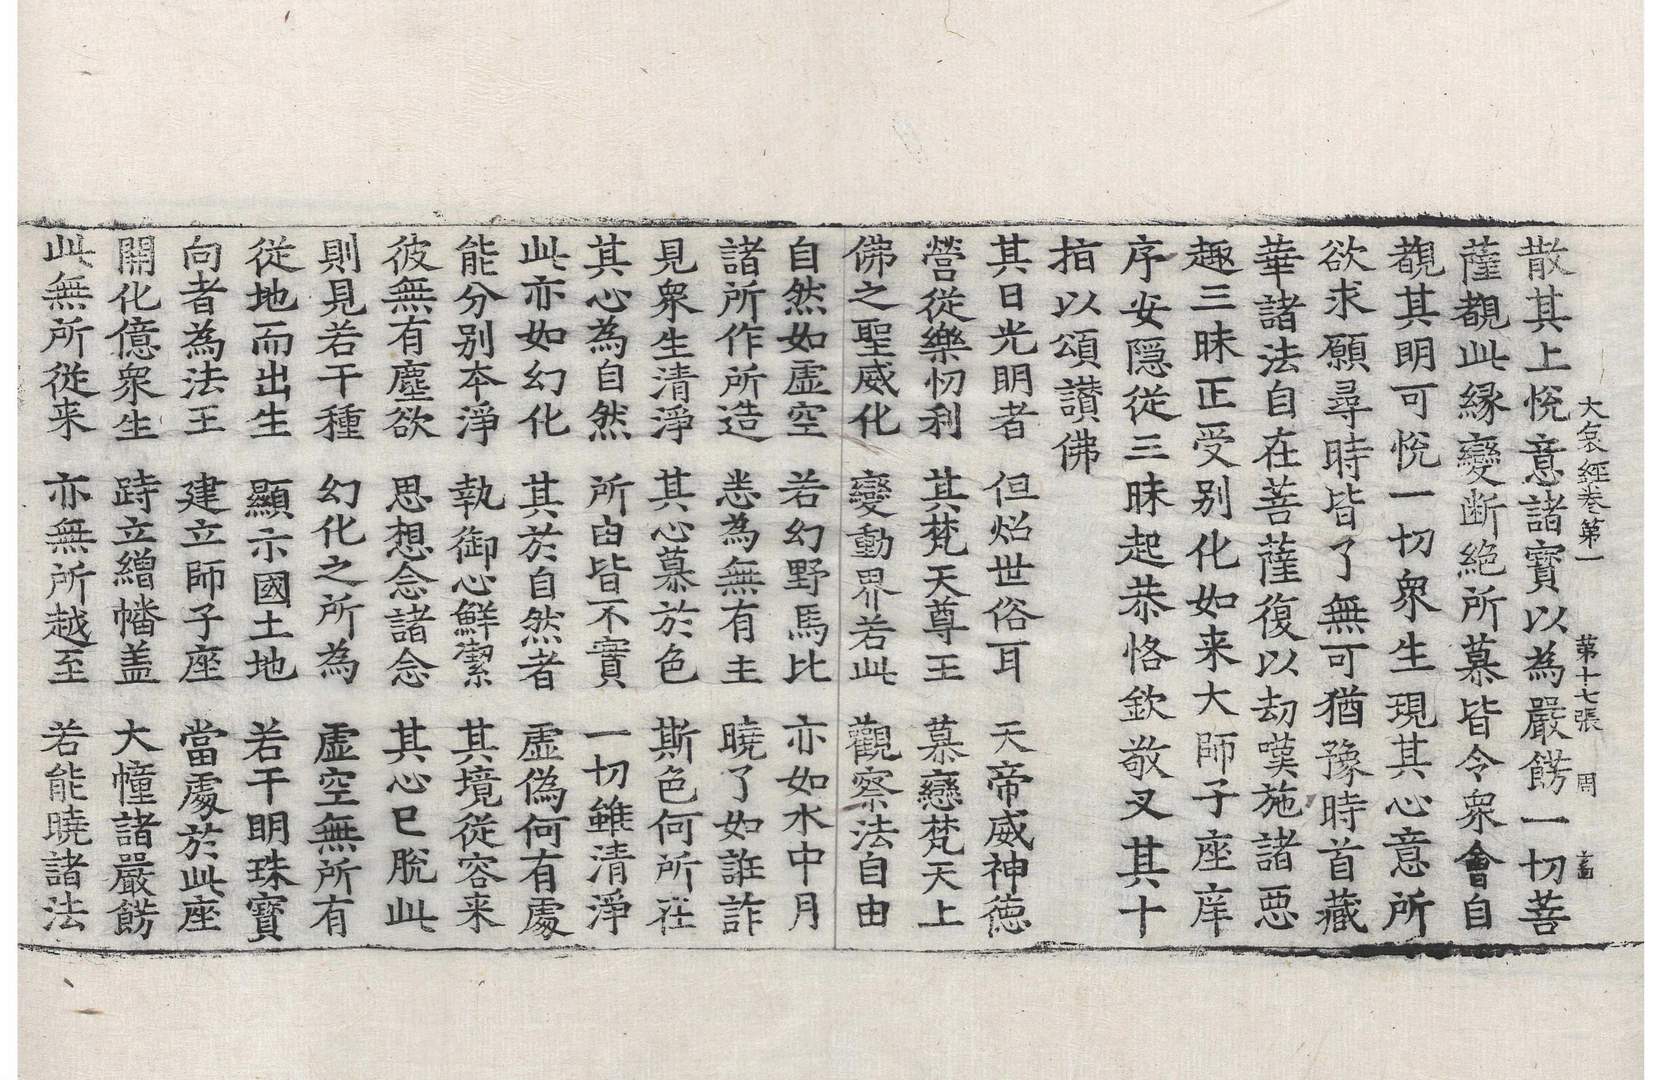 大哀經卷第一　第十七張　周　䔍
散其上悅意諸寶以為嚴餝一切菩
薩覩此緣變断絕所慕皆令衆會自
覩其明可悅一切衆生現其心意所
欲求願尋時皆了無可猶豫時首藏
華諸法自在菩薩復以劫嘆施諸惡
趣三昧正受别化如来大師子座庠
序安隱從三昧起恭恪欽敬叉其十
指以頌讃佛
其日光明者　但炤世俗耳　天帝威神德
營從樂忉利　其梵天尊王　慕戀梵天上
佛之聖威化　變動界若此　觀察法自由
自然如虛空　若幻野馬比　亦如水中月
諸所作所造　悉為無有主　曉了如誑詐
見衆生清淨　其心慕於色　斯色何所在
其心為自然　所由皆不實　一切雖清淨
此亦如幻化　其於自然者　虛偽何有處
能分别本淨　執御心鮮潔　其境從容来
彼無有塵欲　思想念諸念　其心已脫此
則見若干種　幻化之所為　虛空無所有
從地而出生　顯示國土地　若干明珠寶
向者為法王　建立師子座　當處於此座
開化億衆生　跱立繒幡盖　大幢諸嚴餝
此無所從来　亦無所越至　若能曉諸法